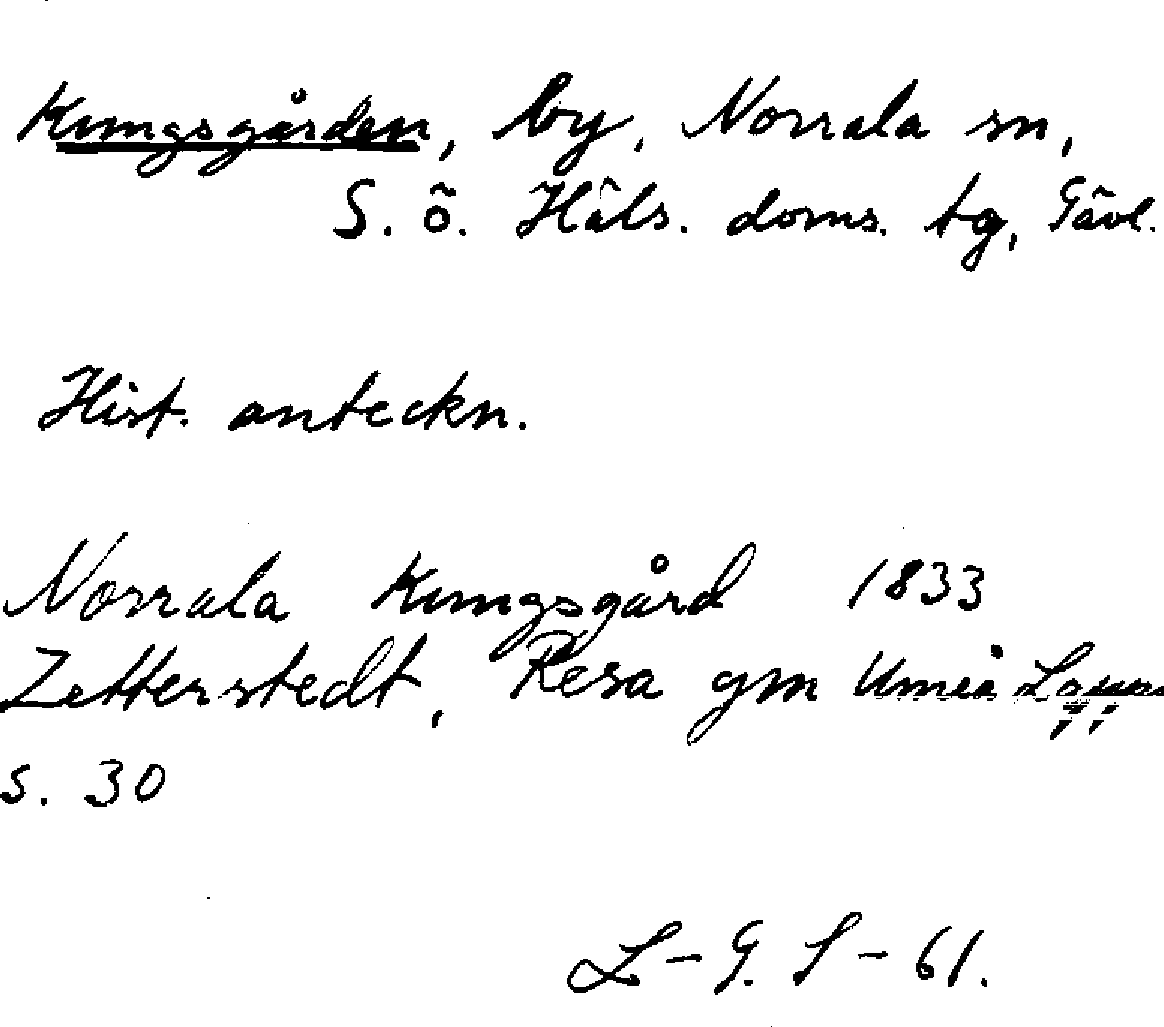 Kungsgården, by, Norrala sn,
S. ö. Häls. doms. tg, Gävl.
Hist. anteckn.
Norrala Kungsgård 1833
Zetterstedt, Resa gm Umeå
s. 30
L-G. S - 61.